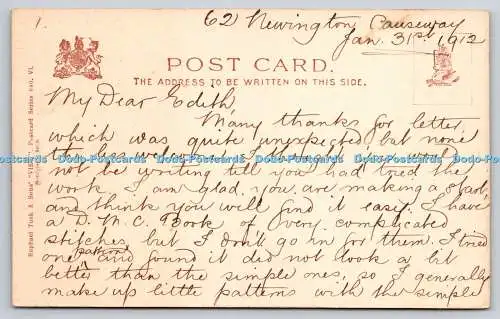 1.
62 Newington Causeway
Jan. 31st 1912
POST CARD.
THE ADDRESS TO BE WRITTEN ON THIS SIDE.
My Dear Edith,
Many thanks for letter,
which was quite unexpected but none
the less welcome. I
not be writing till you had tried the
work. I am glad you are making a start,
and think you will find it easy. I have
a D.M.C. Book of very complicated
stitches, but I don't go in for them. I tried
one pattern and found it did not look a bit
better than the simple ones, so I generally
make up little patterns with the simple
Raphael Tuck & Sons' Postcard Series VI.
Dodo-Postcards Dodo-Postcards Dodo-Postcards Dodo-Postcards Dodo-Postcards